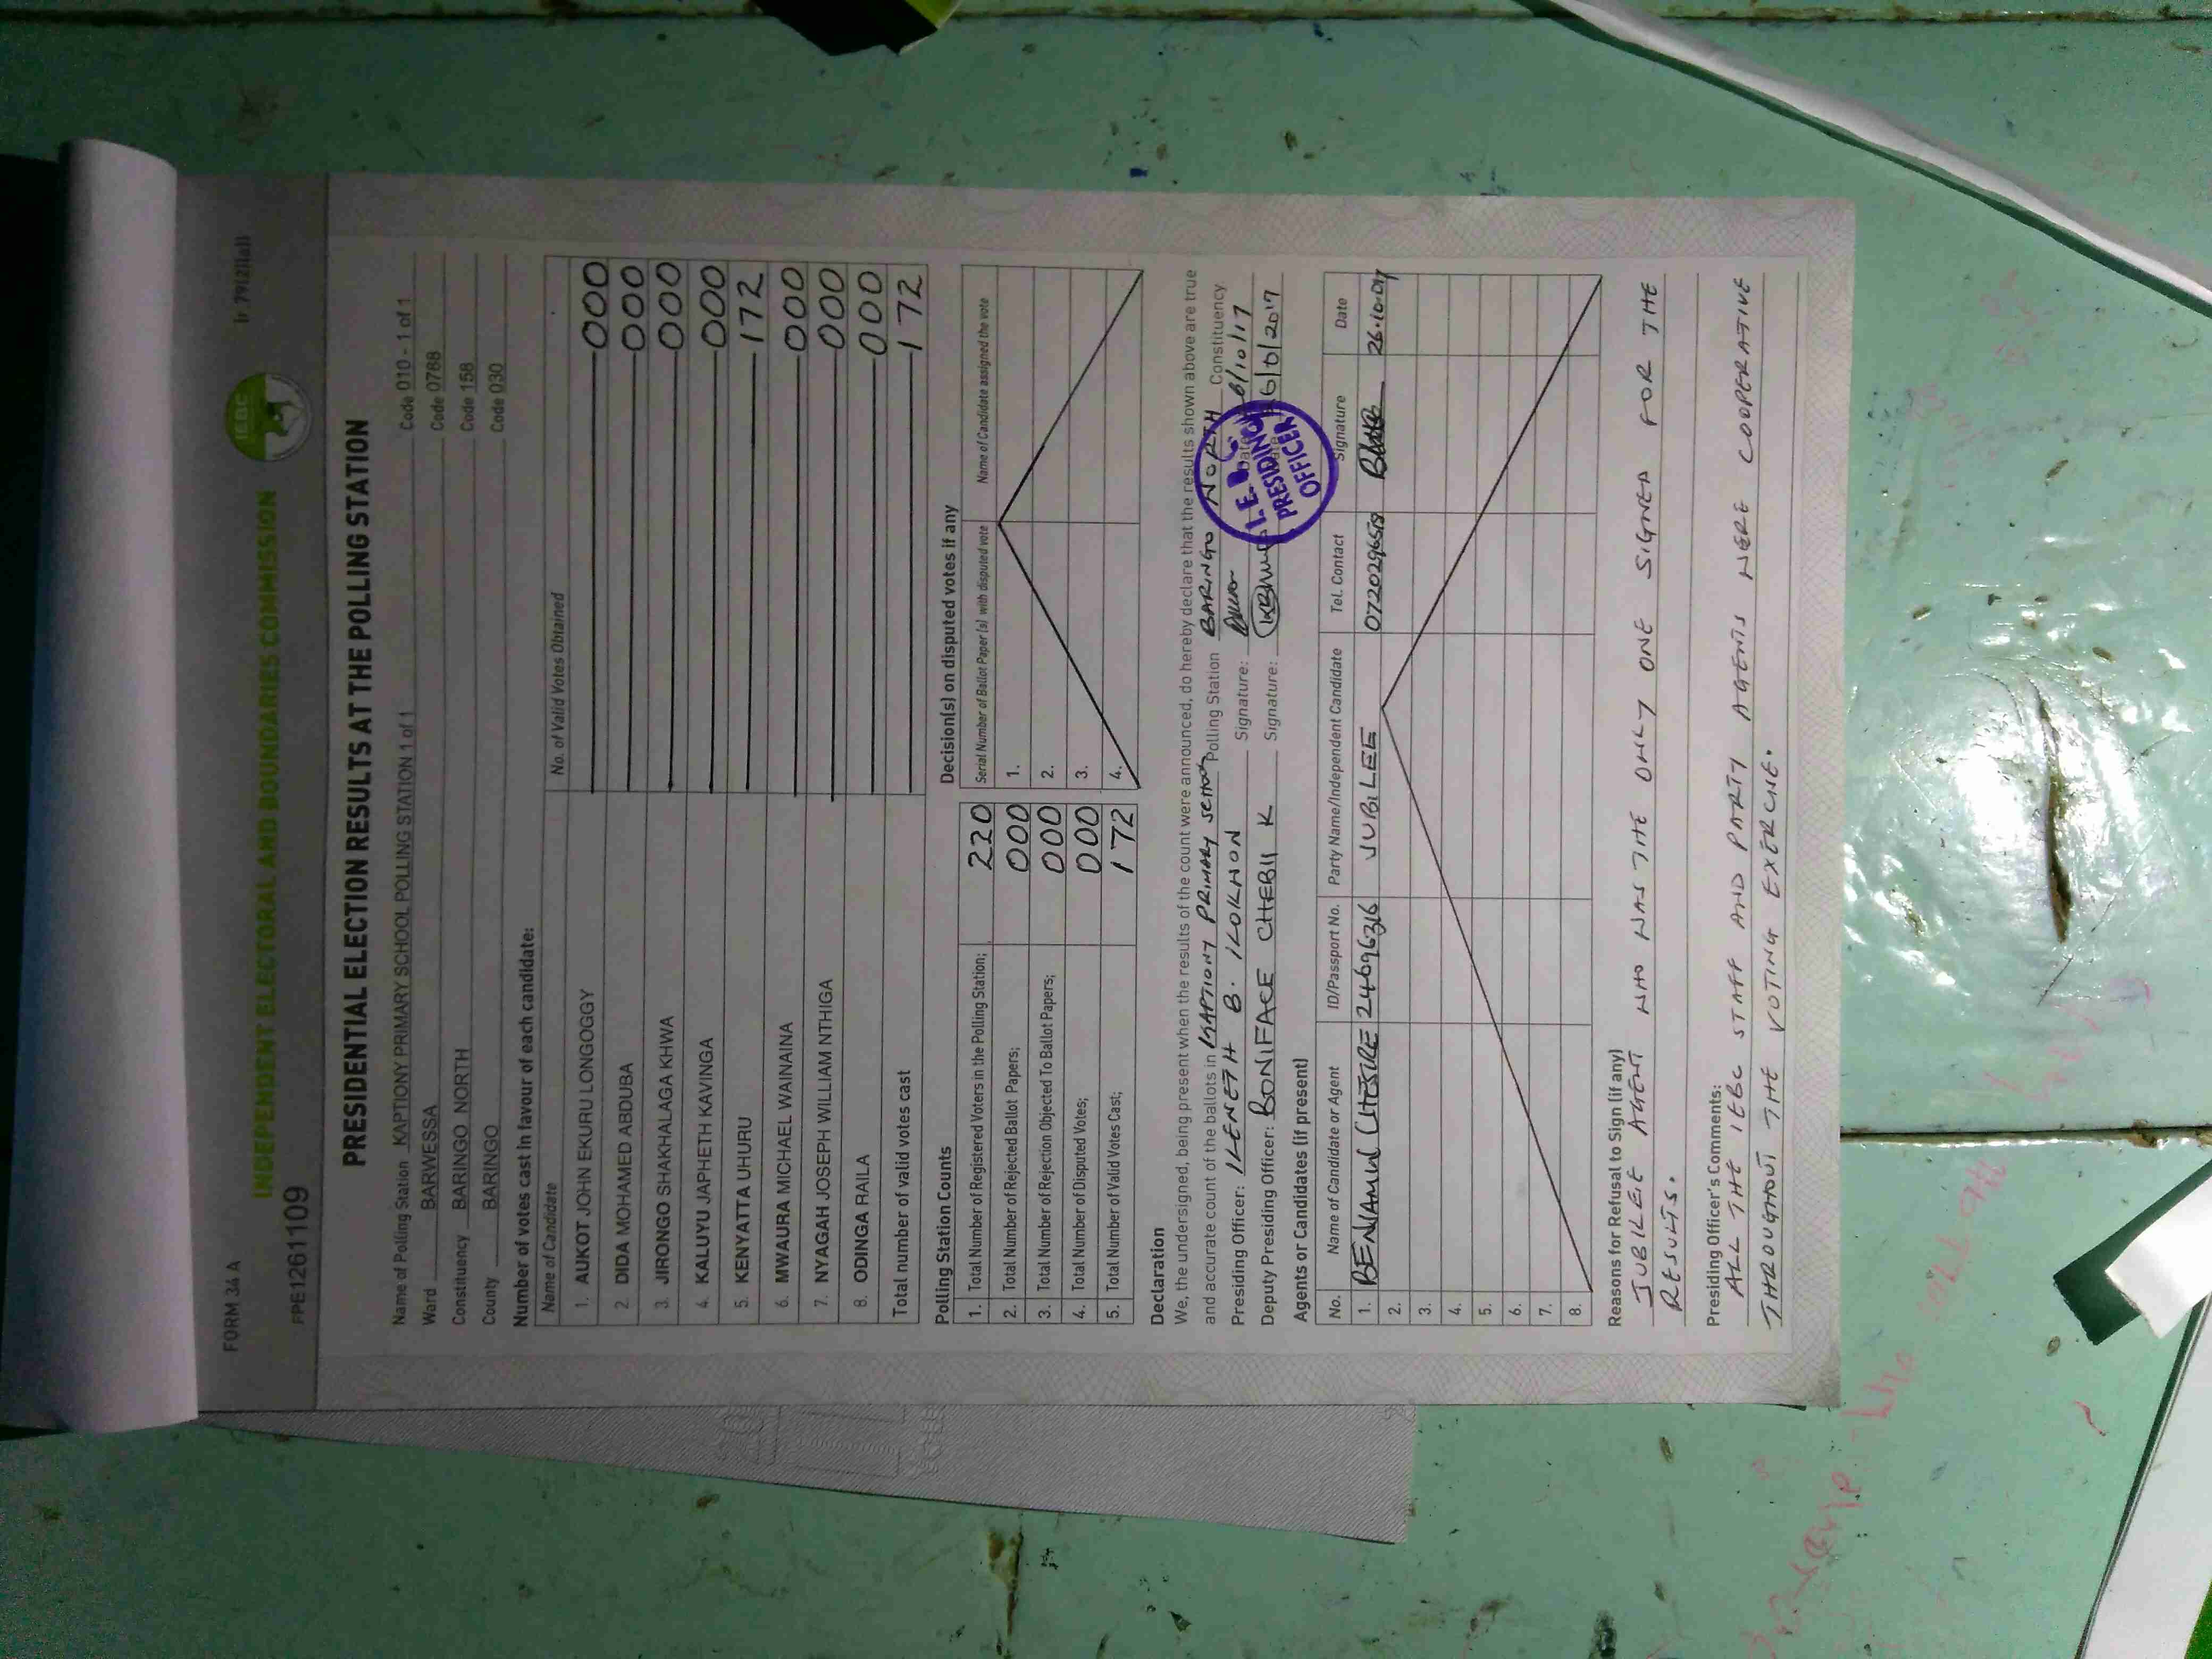 FORM 34 A
INDEPENDENT ELECTORAL AND BOUNDARIES COMMISSION
IEBC
FPE1261109
PRESIDENTIAL ELECTION RESULTS AT THE POLLING STATION
Name of Polling Station KAPTIONY PRIMARY SCHOOL POLLING STATION 1 of 1 Code 010 - 1 of 1
Ward BARWESSA Code 0788
Constituency BARINGO NORTH Code 158
County BARINGO Code 030
Number of votes cast in favour of each candidate:
Name of Candidate No. of Valid Votes Obtained
1. AUKOT JOHN EKURU LONGOGGY 000
2. DIDA MOHAMED ABDUBA 000
3. JIRONGO SHAKHALAGA KHWA 000
4. KALUYU JAPHETH KAVINGA 000
5. KENYATTA UHURU 172
6. MWAURA MICHAEL WAINAINA 000
7. NYAGAH JOSEPH WILLIAM NTHIGA 000
8. ODINGA RAILA 000
Total number of valid votes cast 172
Polling Station Counts
1. Total Number of Registered Voters in the Polling Station; 220
2. Total Number of Rejected Ballot Papers; 000
3. Total Number of Rejection Objected To Ballot Papers; 000
4. Total Number of Disputed Votes; 000
5. Total Number of Valid Votes Cast; 172
Decision(s) on disputed votes if any
Serial Number of Ballot Paper(s) with disputed vote Name of Candidate assigned the vote
1.
2.
3.
4.
Declaration
We, the undersigned, being present when the results of the count were announced, do hereby declare that the results shown above are true
and accurate count of the ballots in KAPTIONY PRIMARY SCHOOL Polling Station BARINGO NORTH Constituency
Presiding Officer: KENETH B. KOKHON Signature: 6/10/17
Deputy Presiding Officer: BONIFACE CHEBII K Signature:
I.E.B.C. PRESIDING OFFICER
Agents or Candidates (if present)
No. Name of Candidate or Agent ID/Passport No. Party Name/Independent Candidate Tel. Contact Signature Date
1. BENJAMIN 24696316 JUBILEE
2.
3.
4.
5.
6.
7.
8.
Reasons for Refusal to Sign (if any)
JUBILEE AGENT WHO WAS THE ONLY ONE SIGNED FOR THE
RESULTS.
Presiding Officer's Comments:
ALL THE IEBC STAFF AND PARTY AGENTS WERE COOPERATIVE
THROUGHOUT THE VOTING EXERCISE.